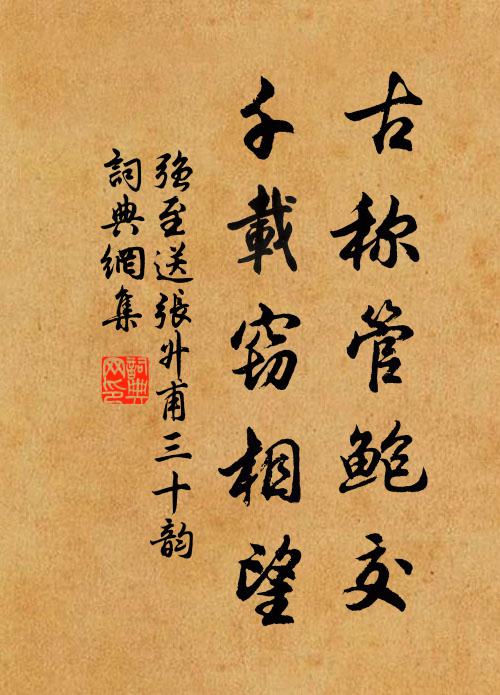 古称管鲍交
千載窃相望
强至送張外甫三十韵
詞典網集
詞典
网印